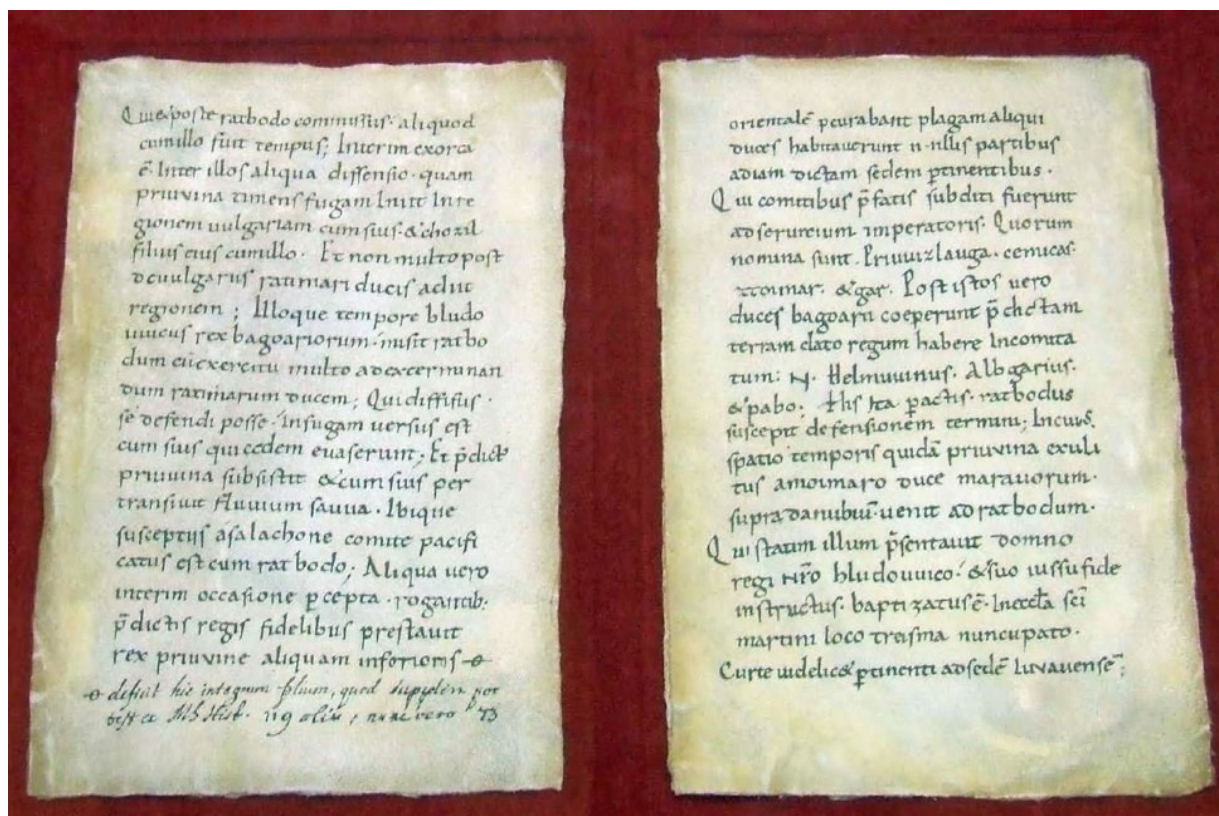 Qui & poste ratbodo commissus· aliquod
cum illo fuit tempus; Interim exorta
ē· Inter illos aliqua dissensio· quam
priuvina timens fugam Iniit In re
gionem uulgariam cum suis· & chozil
filius eius cum illo· Et non multo post
de uulgariis ratimari ducis adiit
regionem; Illoque tempore hludo
uuicus rex bagoariorum· misit ratbo
dum cū exercitu multo ad exterminan
dum ratimarum ducem; Qui diffisus·
se defendi posse· in fugam uersus est
cum suis qui cedem euaserunt; Et p̄dict'
priuvina subsistit & cum suis per
transiuit fluuium sauua· Ibique
susceptus a salachone comite pacifi
catus est cum ratbodo; Aliqua uero
interim occasione pcepta· rogantib;
p̄dictis regis fidelibus prestauit
rex priuvine aliquam inferioris
deficit hic integrum folium, quod suppleri pot
est ex MS Hist. 119 olim; nunc vero 73
orientalē pcurabant plagam aliqui
duces habitauerunt in illis partibus
ad iam dictam sedem ptinentibus·
Qui comitibus p̄fatis subditi fuerunt
ad seruitium imperatoris· Quorum
nomina sunt· Priuuizlauga· cemicas·
ztoimar· & gar· Post istos uero
duces bagoarii coeperunt p̄dictam
terram dato regum habere In comita
tum: N· Helmuuinus· Albgarius·
& pabo; His Ita pactis· ratbodus
suscepit defensionem termini; In cuius
spatio temporis quidā priuvina exuli
tus a moimaro duce marauorum·
supra danubiū uenit ad ratbodum·
Qui statim illum p̄sentauit domno
regi nr̄o hludouuico· & suo iussu fide
instructus· baptizatus ē· In eccła sci
martini loco treisma nuncupato·
Curte uidelic& ptinenti ad sedē Iuuauensē;